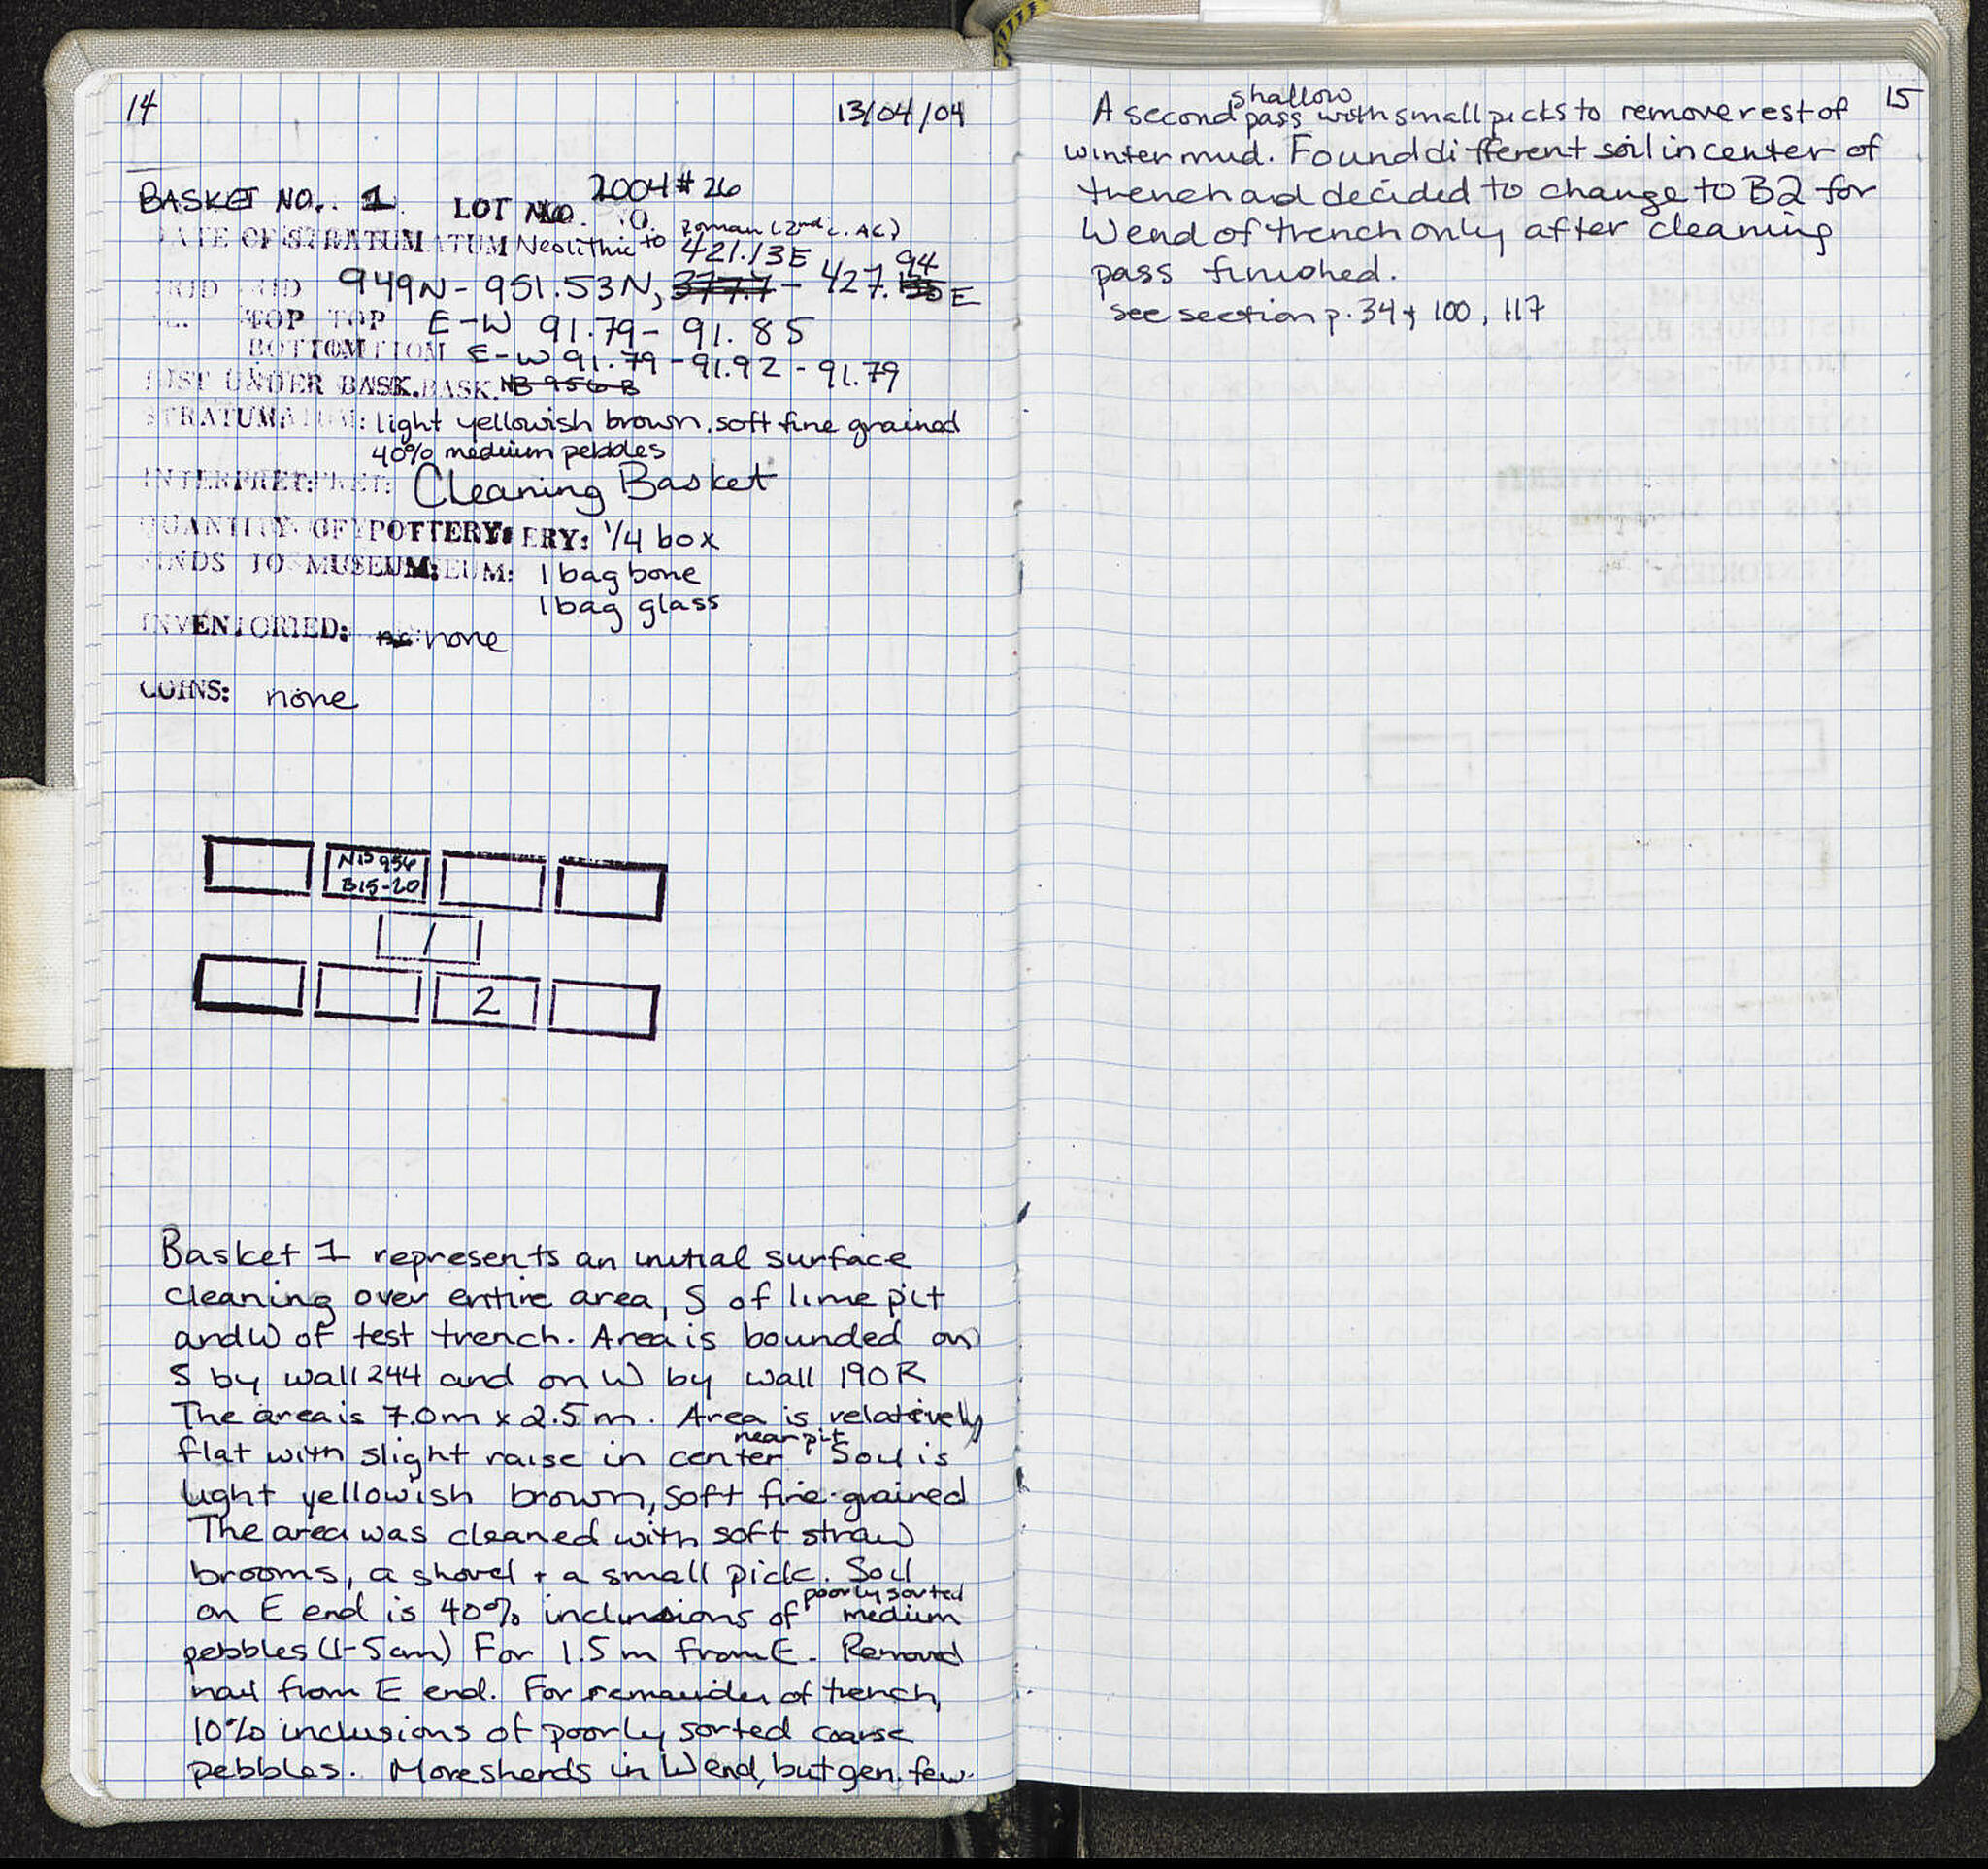 14
13/04/04
BASKET NO. 1 LOT NO. 2004 # 26
DATE OF STRATUM Neolithic to Roman (2nd c. AC)
421.13E
GRID 949N - 951.53N, - 427.94 E
TOP E-W 91.79 - 91.85
BOTTOM E-W 91.79 - 91.92 - 91.79
JUST UNDER BASK. NB 956 B
STRATUM: light yellowish brown, soft fine grained
40% medium pebbles
INTERPRET: Cleaning Basket
QUANTITY OF POTTERY: 1/4 box
FINDS TO MUSEUM: 1 bag bone
1 bag glass
INVENTORIED: none
COINS: none
NB 956
B15-20
1
2
Basket 1 represents an initial surface
cleaning over entire area, S of lime pit
and W of test trench. Area is bounded on
S by wall 244 and on W by wall 190R
The area is 7.0m x 2.5m. Area is relatively
flat with slight raise in center near pit Soil is
light yellowish brown, soft fine-grained
The area was cleaned with soft straw
brooms, a shovel + a small pick. Soil
on E end is 40% inclusions of poorly sorted medium
pebbles (1-5cm) For 1.5 m from E. Removed
nail from E end. For remainder of trench,
10% inclusions of poorly sorted coarse
pebbles. More sherds in W end, but gen. few.
15
A second shallow pass with small picks to remove rest of
winter mud. Found different soil in center of
trench and decided to change to B2 for
W end of trench only after cleaning
pass finished.
see section p. 34 + 100, 117